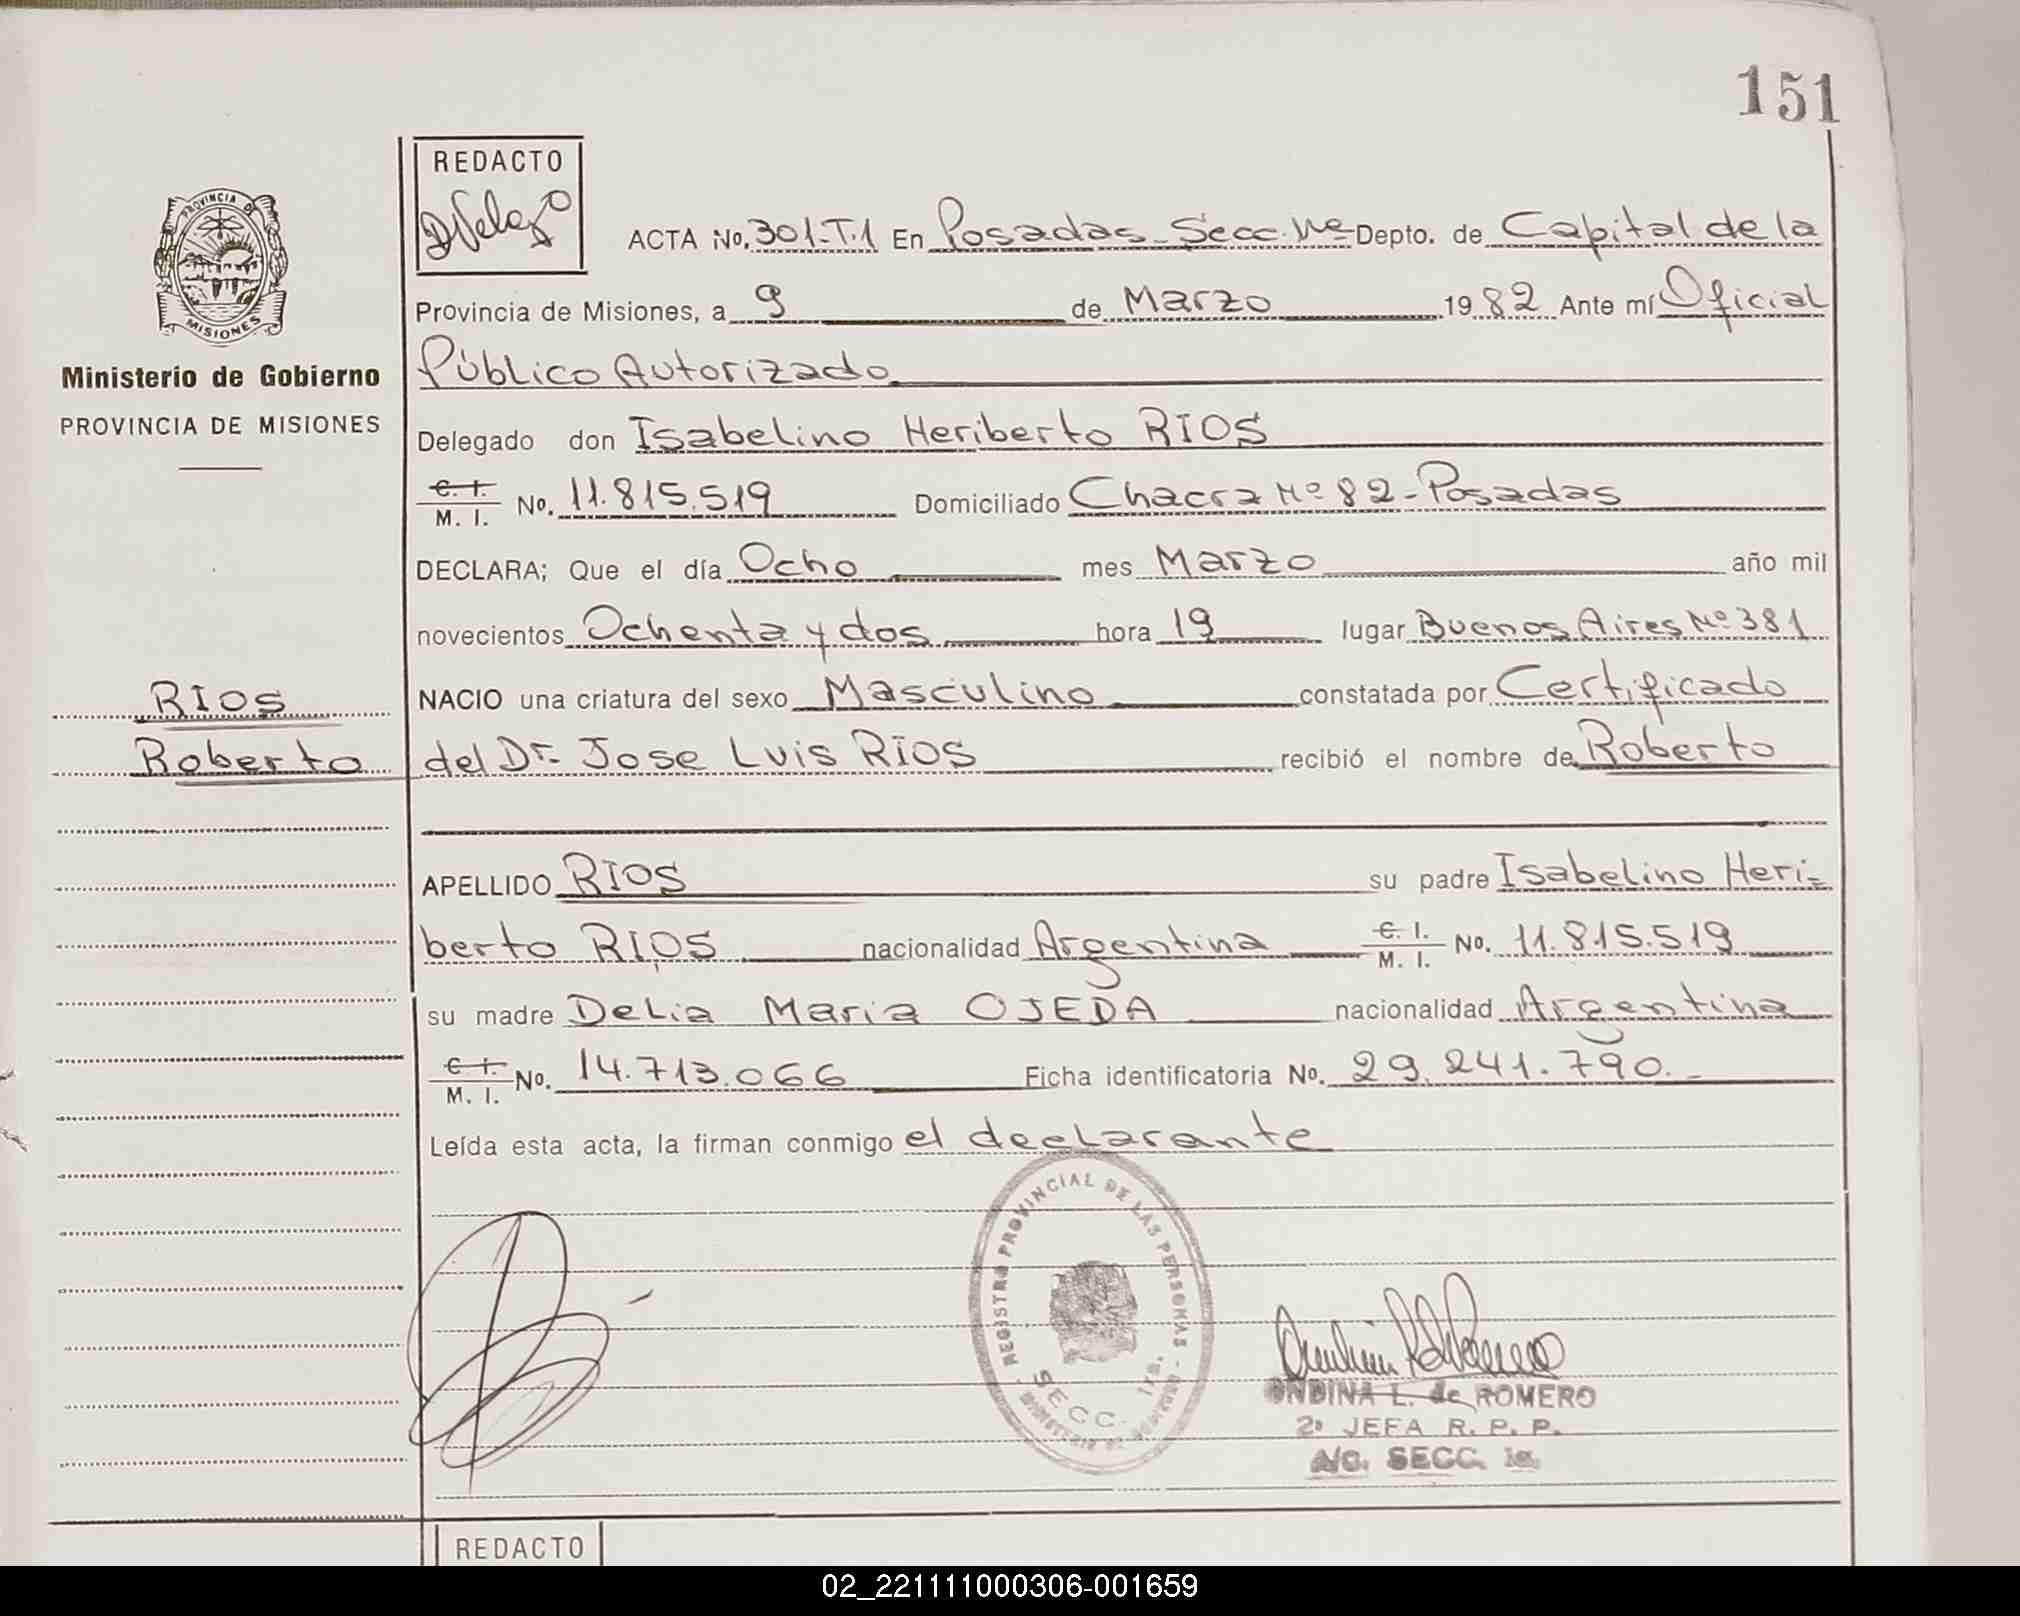 151
REDACTO
PROVINCIA DE
MISIONES
Ministerio de Gobierno
PROVINCIA DE MISIONES
ACTA No. 301-T.1 En Posadas-Secc. 1ra Depto. de Capital de la
Provincia de Misiones, a 9 de Marzo 1982 Ante mí Oficial
Público Autorizado
Delegado don Isabelino Heriberto RIOS
C. I. M. I. No. 11.815.519 Domiciliado Chacra Nº 82-Posadas
DECLARA; Que el día Ocho mes Marzo año mil
novecientos Ochenta y dos hora 19 lugar Buenos Aires Nº 381
NACIO una criatura del sexo Masculino constatada por Certificado
RIOS
Roberto
del Dr. Jose Luis RIOS recibió el nombre de Roberto
APELLIDO RIOS su padre Isabelino Heri-
berto RIOS nacionalidad Argentina C. I. M. I. No. 11.815.519
su madre Delia Maria OJEDA nacionalidad Argentina
C. I. M. I. No. 14.713.066 Ficha identificatoria No. 29.241.790.-
Leída esta acta, la firman conmigo el declarante
REGISTRO PROVINCIAL DE LAS PERSONAS
SECC. 1ra.
ONDINA L. de ROMERO
2º JEFA R. P. P.
A/C. SECC. 1a.
REDACTO
02_221111000306-001659